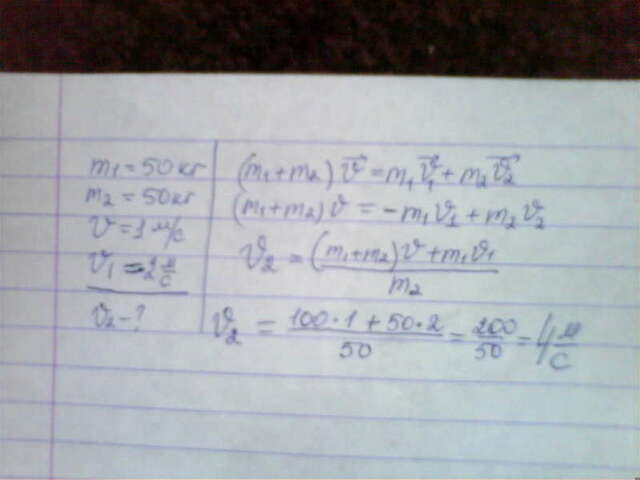 m₁ = 50 кг
m₂ = 50 кг
v = 1 м/с
v₁ = 2 м/с
v₂ - ?
(m₁+m₂) v⃗ = m₁v⃗₁ + m₂v⃗₂
(m₁+m₂) v = -m₁v₁ + m₂v₂
v₂ = ((m₁+m₂)v + m₁v₁)/m₂
v₂ = (100·1 + 50·2)/50 = 200/50 = 4 м/с